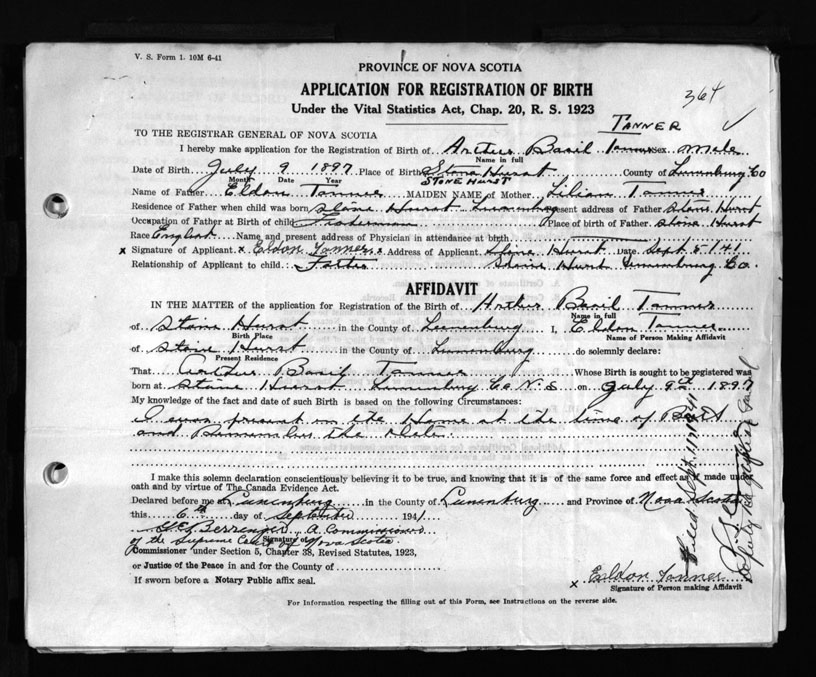 V. S. Form 1. 10M 6-41
PROVINCE OF NOVA SCOTIA
APPLICATION FOR REGISTRATION OF BIRTH
364
Under the Vital Statistics Act, Chap. 20, R. S. 1923
TANNER ✓
TO THE REGISTRAR GENERAL OF NOVA SCOTIA
I hereby make application for the Registration of Birth of Arthur Basil Tanner sex Male
Name in full
Date of Birth July 9 1897 Place of Birth Stone Hurst County of Lunenburg Co
Month Date Year STONEHURST
Name of Father Eldon Tanner MAIDEN NAME of Mother Lilian Tanner
Residence of Father when child was born Stone Hurst Lunenburg Present address of Father Stone Hurst
Occupation of Father at Birth of child Fisherman Place of birth of Father Stone Hurst
Race English Name and present address of Physician in attendance at birth
x Signature of Applicant x Eldon Tanner x Address of Applicant Stone Hurst Date Sept 5-1941
Relationship of Applicant to child: Father Stone Hurst Lunenburg Co.
AFFIDAVIT
IN THE MATTER of the application for Registration of the Birth of Arthur Basil Tanner
Name in full
of Stone Hurst in the County of Lunenburg I, Eldon Tanner
Birth Place Name of Person Making Affidavit
of Stone Hurst in the County of Lunenburg do solemnly declare:
Present Residence
That Arthur Basil Tanner Whose Birth is sought to be registered was
born at Stone Hurst Lunenburg Co N. S on July 9th 1897
My knowledge of the fact and date of such Birth is based on the following Circumstances:
I was present in the Home at the time of Birth
and Remember the date.
I make this solemn declaration conscientiously believing it to be true, and knowing that it is of the same force and effect as if made under
oath and by virtue of The Canada Evidence Act.
Declared before me at Lunenburg in the County of Lunenburg and Province of Nova Scotia
this 6th day of September 1941
Berringer, A Commissioner
of the Supreme Court of Nova Scotia
Signature of
Commissioner under Section 5, Chapter 38, Revised Statutes, 1923,
or Justice of the Peace in and for the County of
If sworn before a Notary Public affix seal.
x Eldon Tanner
Signature of Person making Affidavit
For Information respecting the filling out of this Form, see Instructions on the reverse side.
Filed Sept. 11 1941